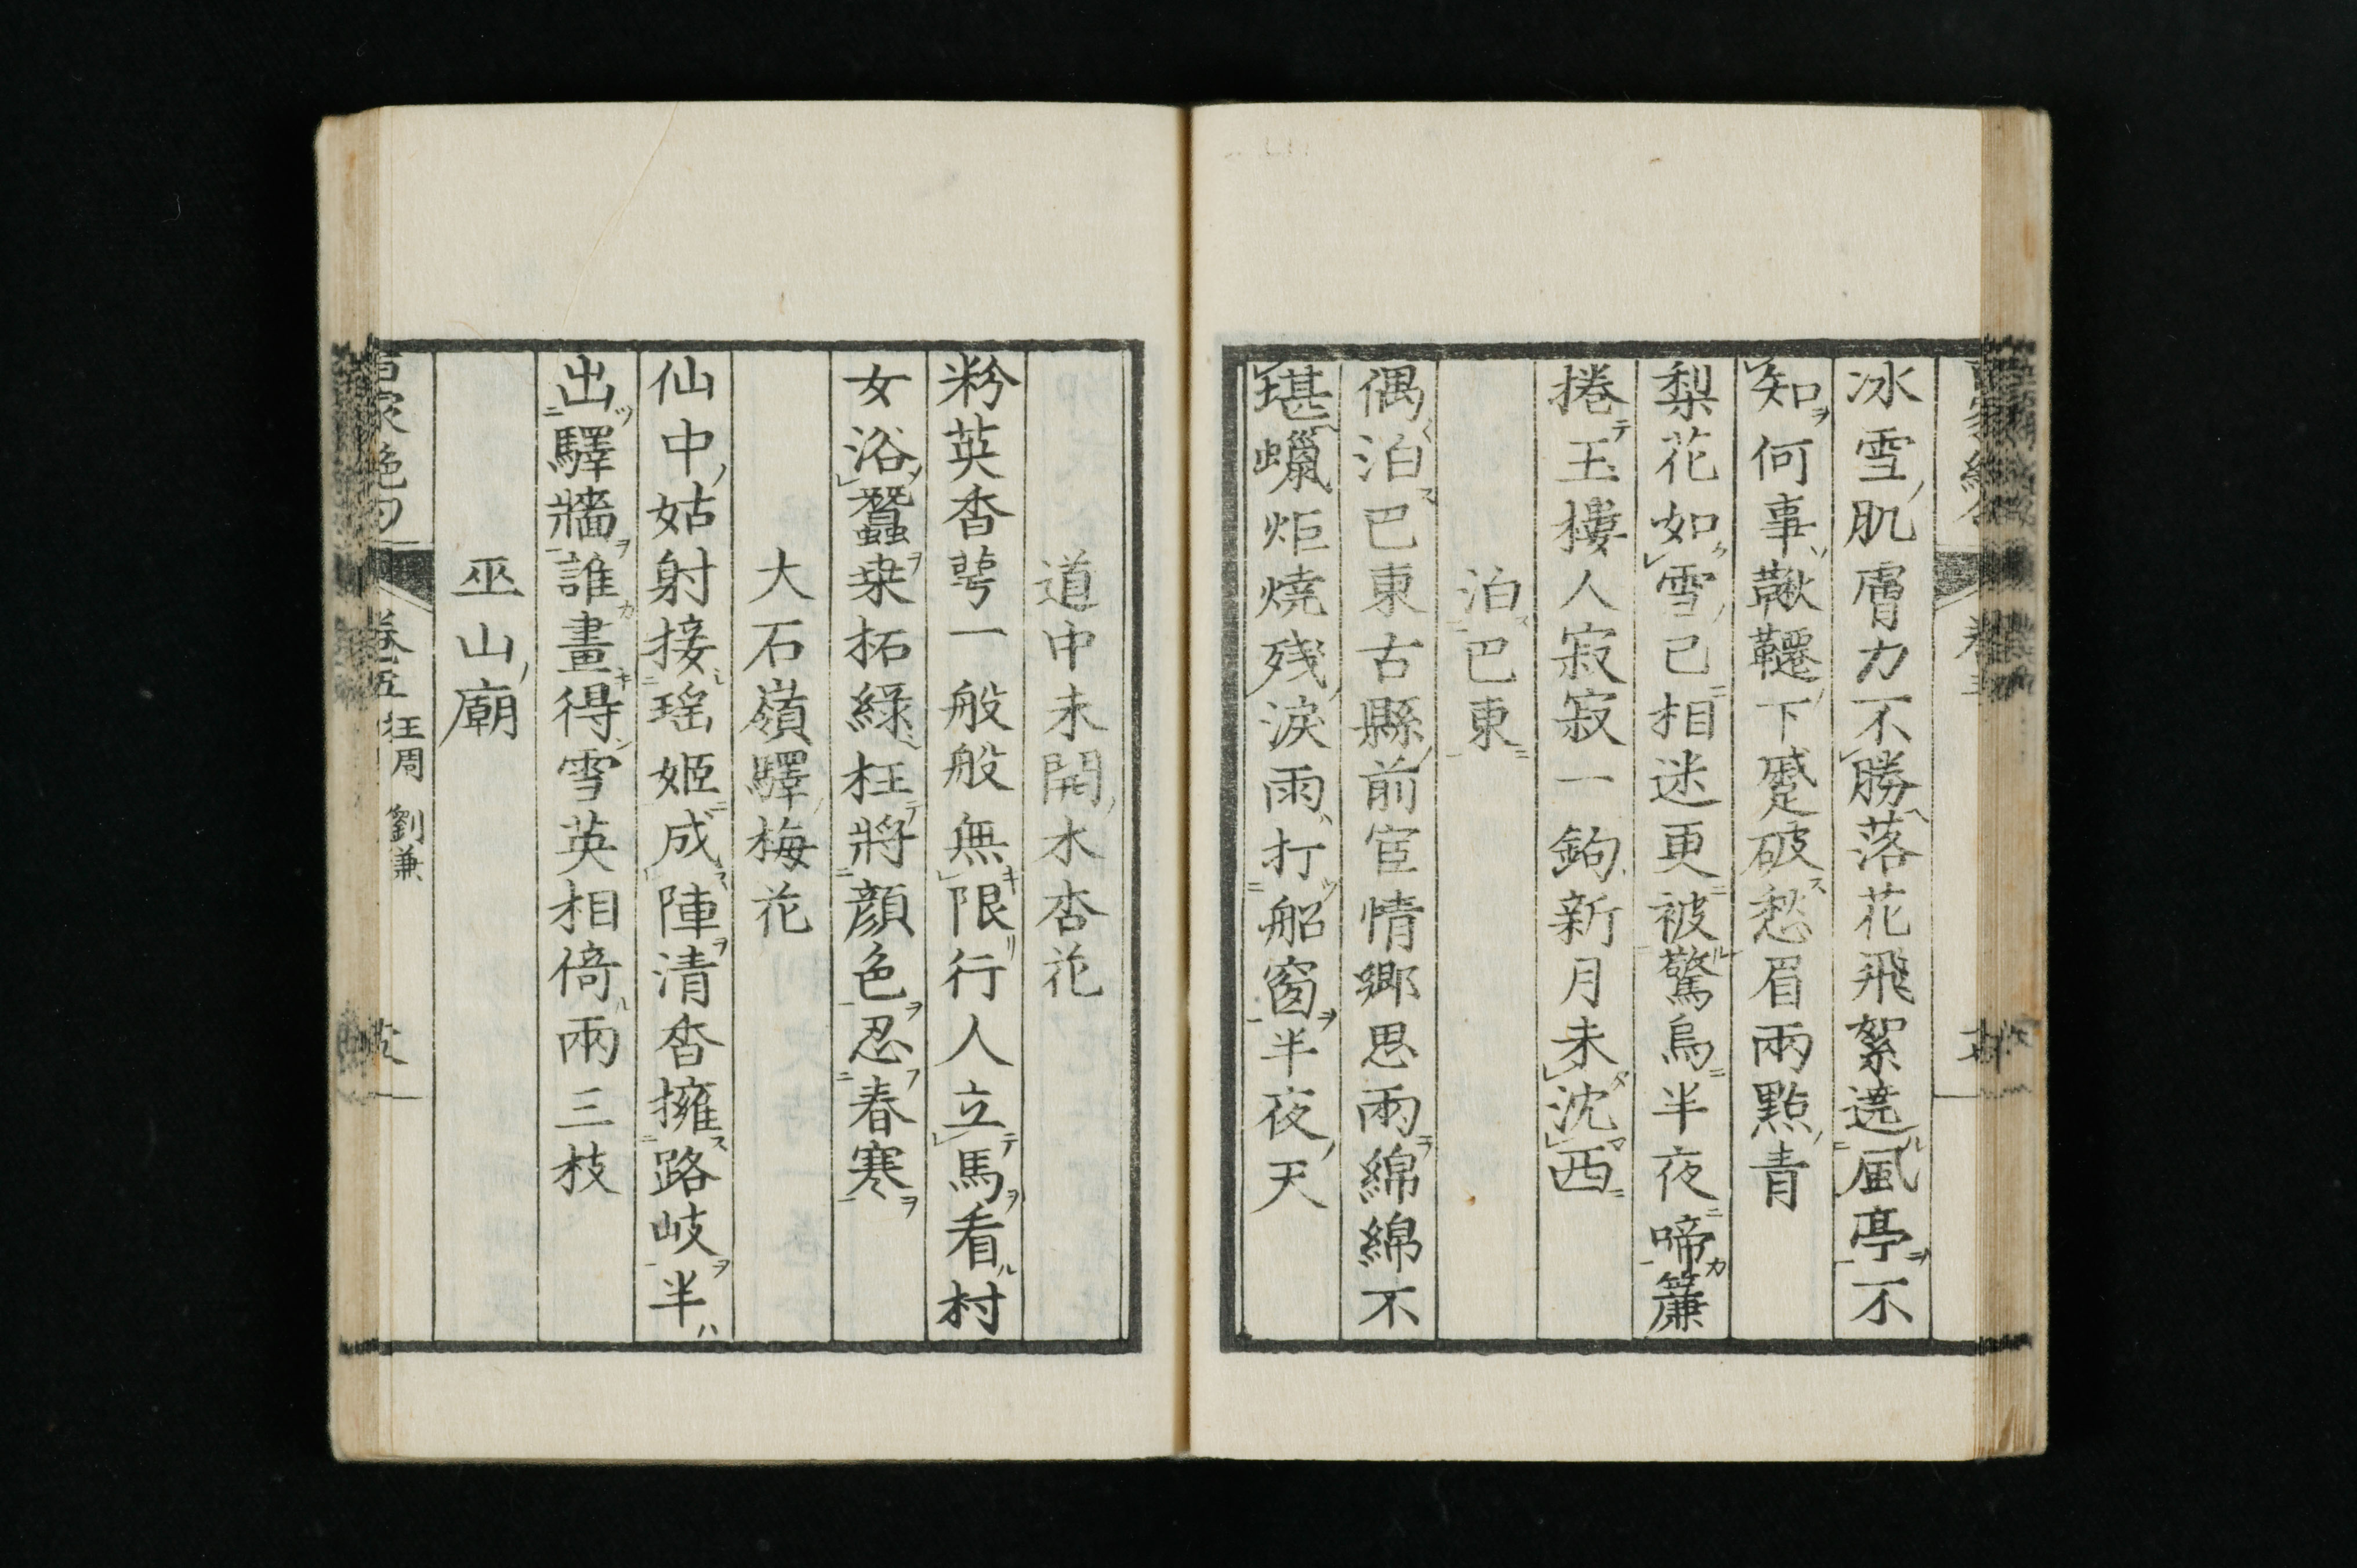 冰雪肌膚力不勝落花飛絮遶風亭不
知何事鞦韆下蹙破愁眉兩點青
梨花如雪已相迷更被驚烏半夜啼簾
捲玉樓人寂寂一鉤新月未沈西
泊巴東
偶泊巴東古縣前宦情鄉思兩綿綿不
堪蠟炬燒殘淚雨打船窗半夜天
道中未開木杏花
粉英香萼一般般無限行人立馬看村
女浴蠶桒拓綠枉將顏色忍春寒
大石嶺驛梅花
仙中姑射接瑤姬成陣清香擁路岐半
出驛牆誰畫得雪英相倚兩三枝
巫山廟
百家絶句 卷五 狂周 劉兼